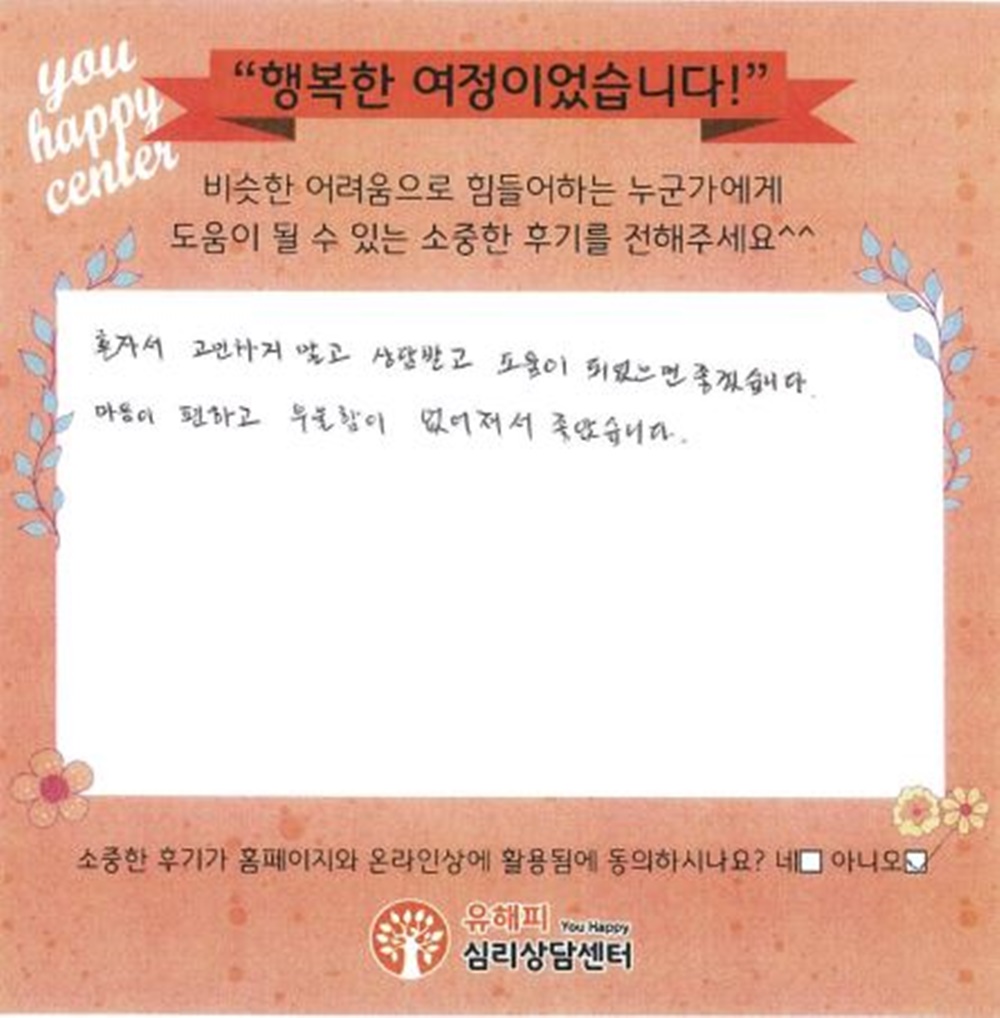 you
happy
center
“행복한 여정이었습니다!”
비슷한 어려움으로 힘들어하는 누군가에게
도움이 될 수 있는 소중한 후기를 전해주세요^^
혼자서 고민하지 말고 상담받고 도움이 되었으면 좋겠습니다.
마음이 편하고 우울함이 없어져서 좋았습니다.
소중한 후기가 홈페이지와 온라인상에 활용됨에 동의하시나요? 네 아니오
유해피 You Happy
심리상담센터